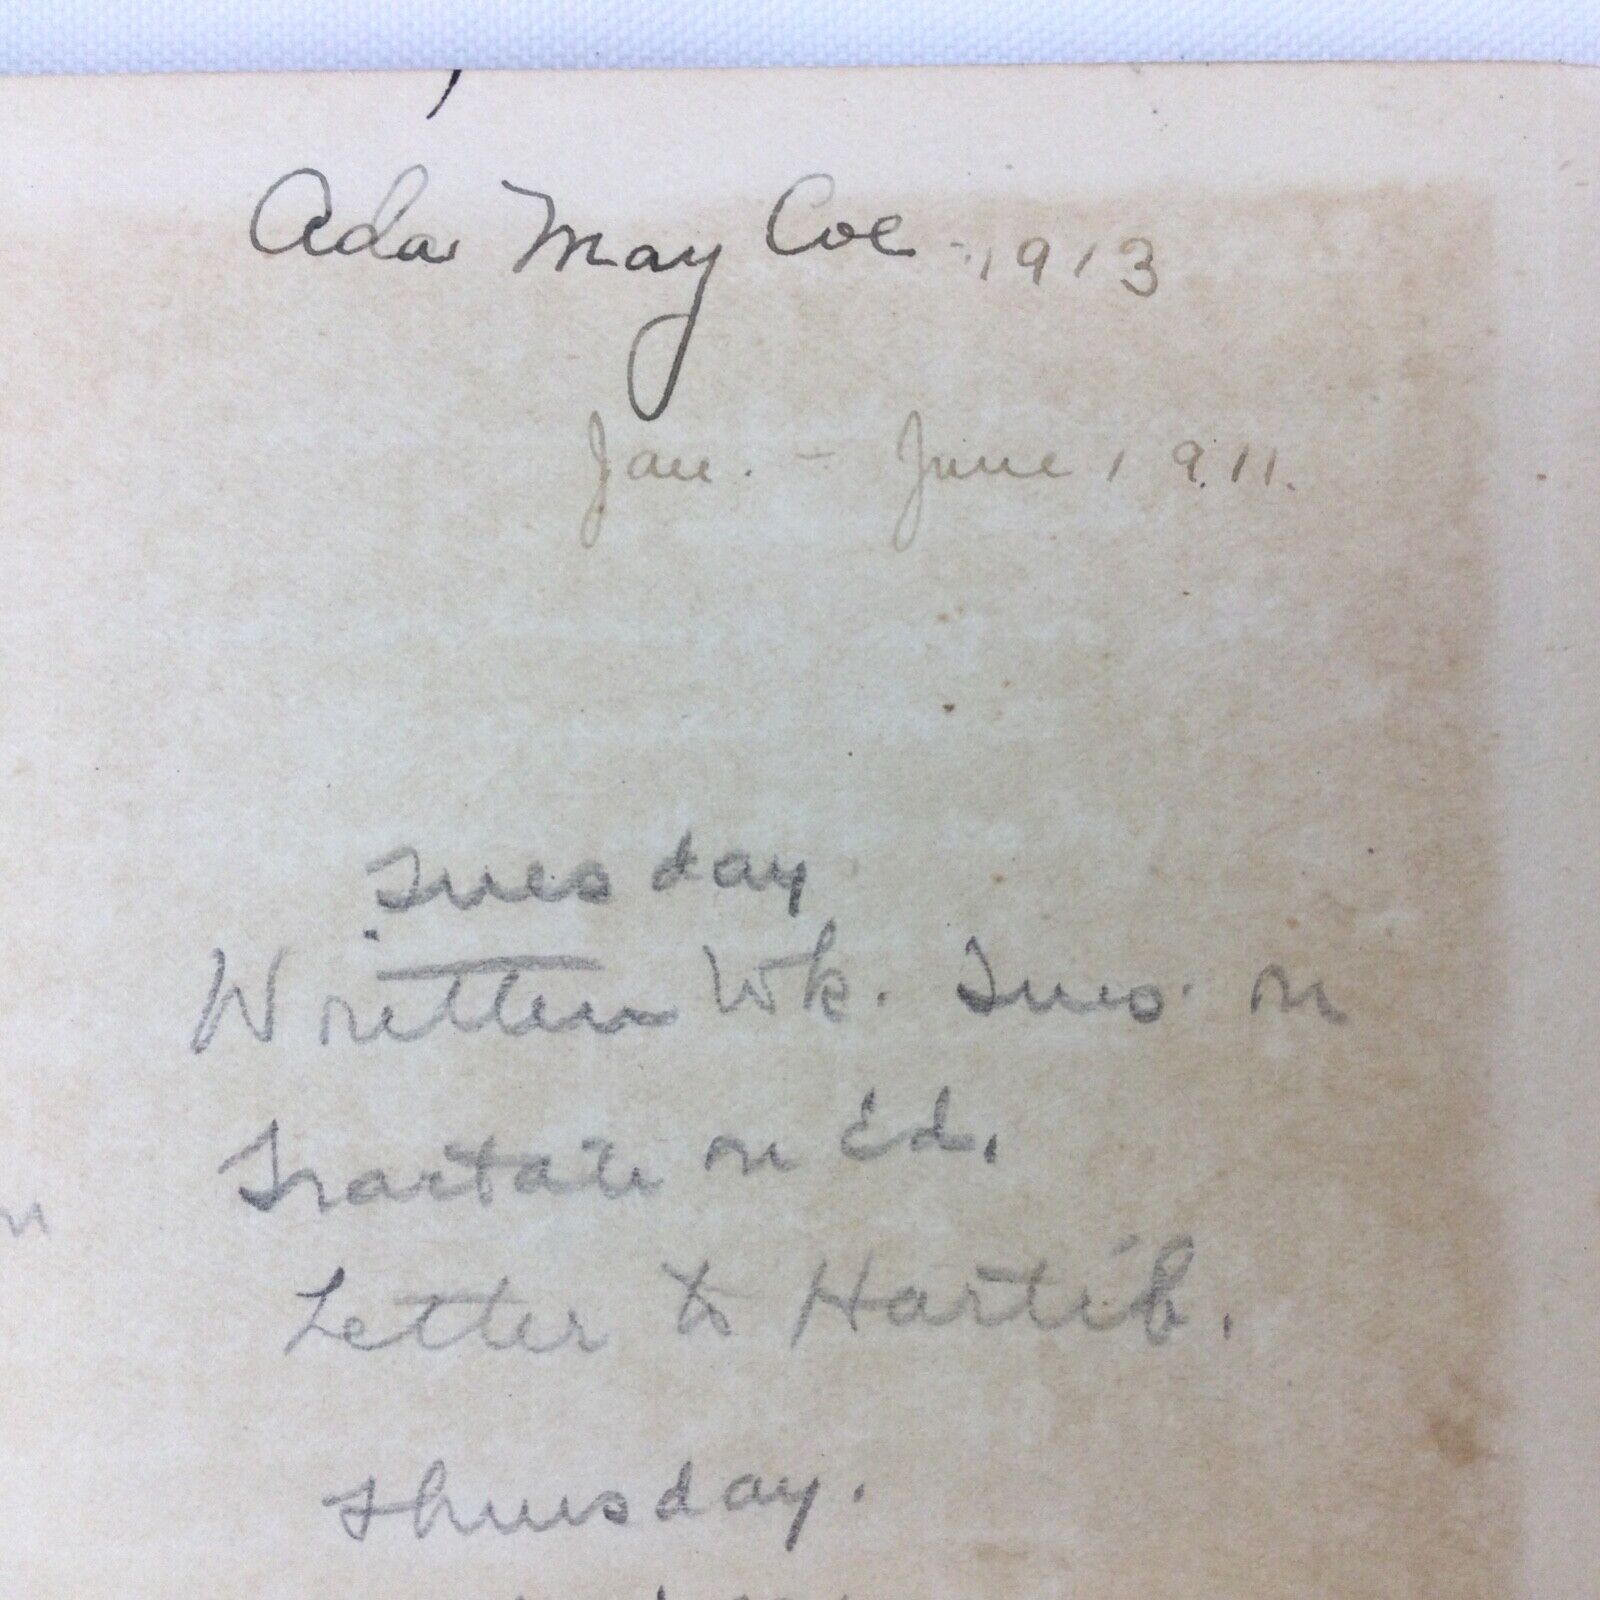 Ada May Coe - 1913
Jan. - June 1911.
Tuesday
Written Wk. Tues. on
Tractate on Ed.
Letter to Hartlib.
Thursday.